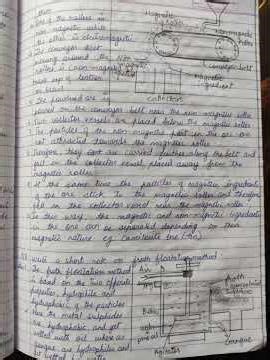 One of the rollers is
non magnetic while
the other is electromagnetic
The conveyor belt
moving around the
rollers is non magnetic
made up of leather
or brass
The powdered ore is
placed on the conveyor belt near the non magnetic roller
Two collector vessels are placed below the magnetic roller
The particles of the non magnetic part in the ore are
not attracted towards the magnetic roller
Therefore, they are carried further along the belt and
fall in the collector vessel placed away from the
magnetic roller
At the same time the particles of magnetic ingredients
of the ore stick to the magnetic roller and therefore
fall in the collector vessel near the magnetic roller
In this way, the magnetic and non-magnetic ingredients
in the ore can be separated depending on their
magnetic nature eg. Cassiterite (tin ore)
Magnetic
roller
Non magnetic
roller
Conveyor belt
Magnetic
ingredient
Write a short note on froth floatation method
The froth floatation method
is based on the two opposite
properties, hydrophilic and
hydrophobic, of the particles
Here the metal sulphides
are hydrophobic and get
wetted with oil whereas
gangue are hydrophilic and
get wetted with water
Air
Froth
Agitator
Gangue